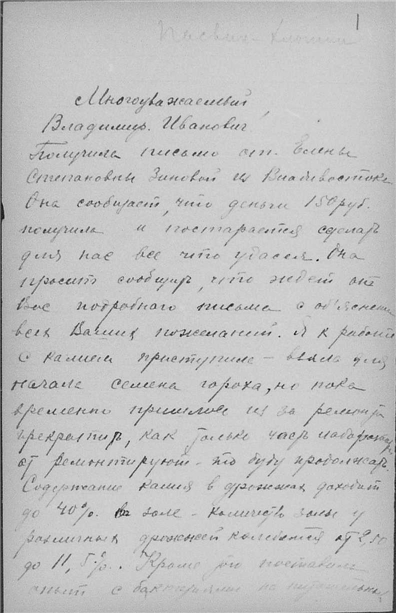 1
Многоуважаемый
Владимир Иванович
Получила письмо от Елены
Степановны Зиновой из Владивостока
Она сообщает, что деньги 150 руб.
получила и постарается сделать
для нас все что удасся. Она
просит сообщить, что ждет от
Вас подробного письма с об'яснен
всех Ваших пожеланий. Я к работе
с калием приступила – взяла для
начала семена гороха, но пока
временно пришлось из за ремонта
прекратить, как только часть
от ремонтируют – то буду продолжать
Содержание калия в дрожжах доходит
до 40% в золе – количество золы у
различных дрожжей колеблется от 2,50
до 11,5%. Кроме того поставила
опыт с бактериями на